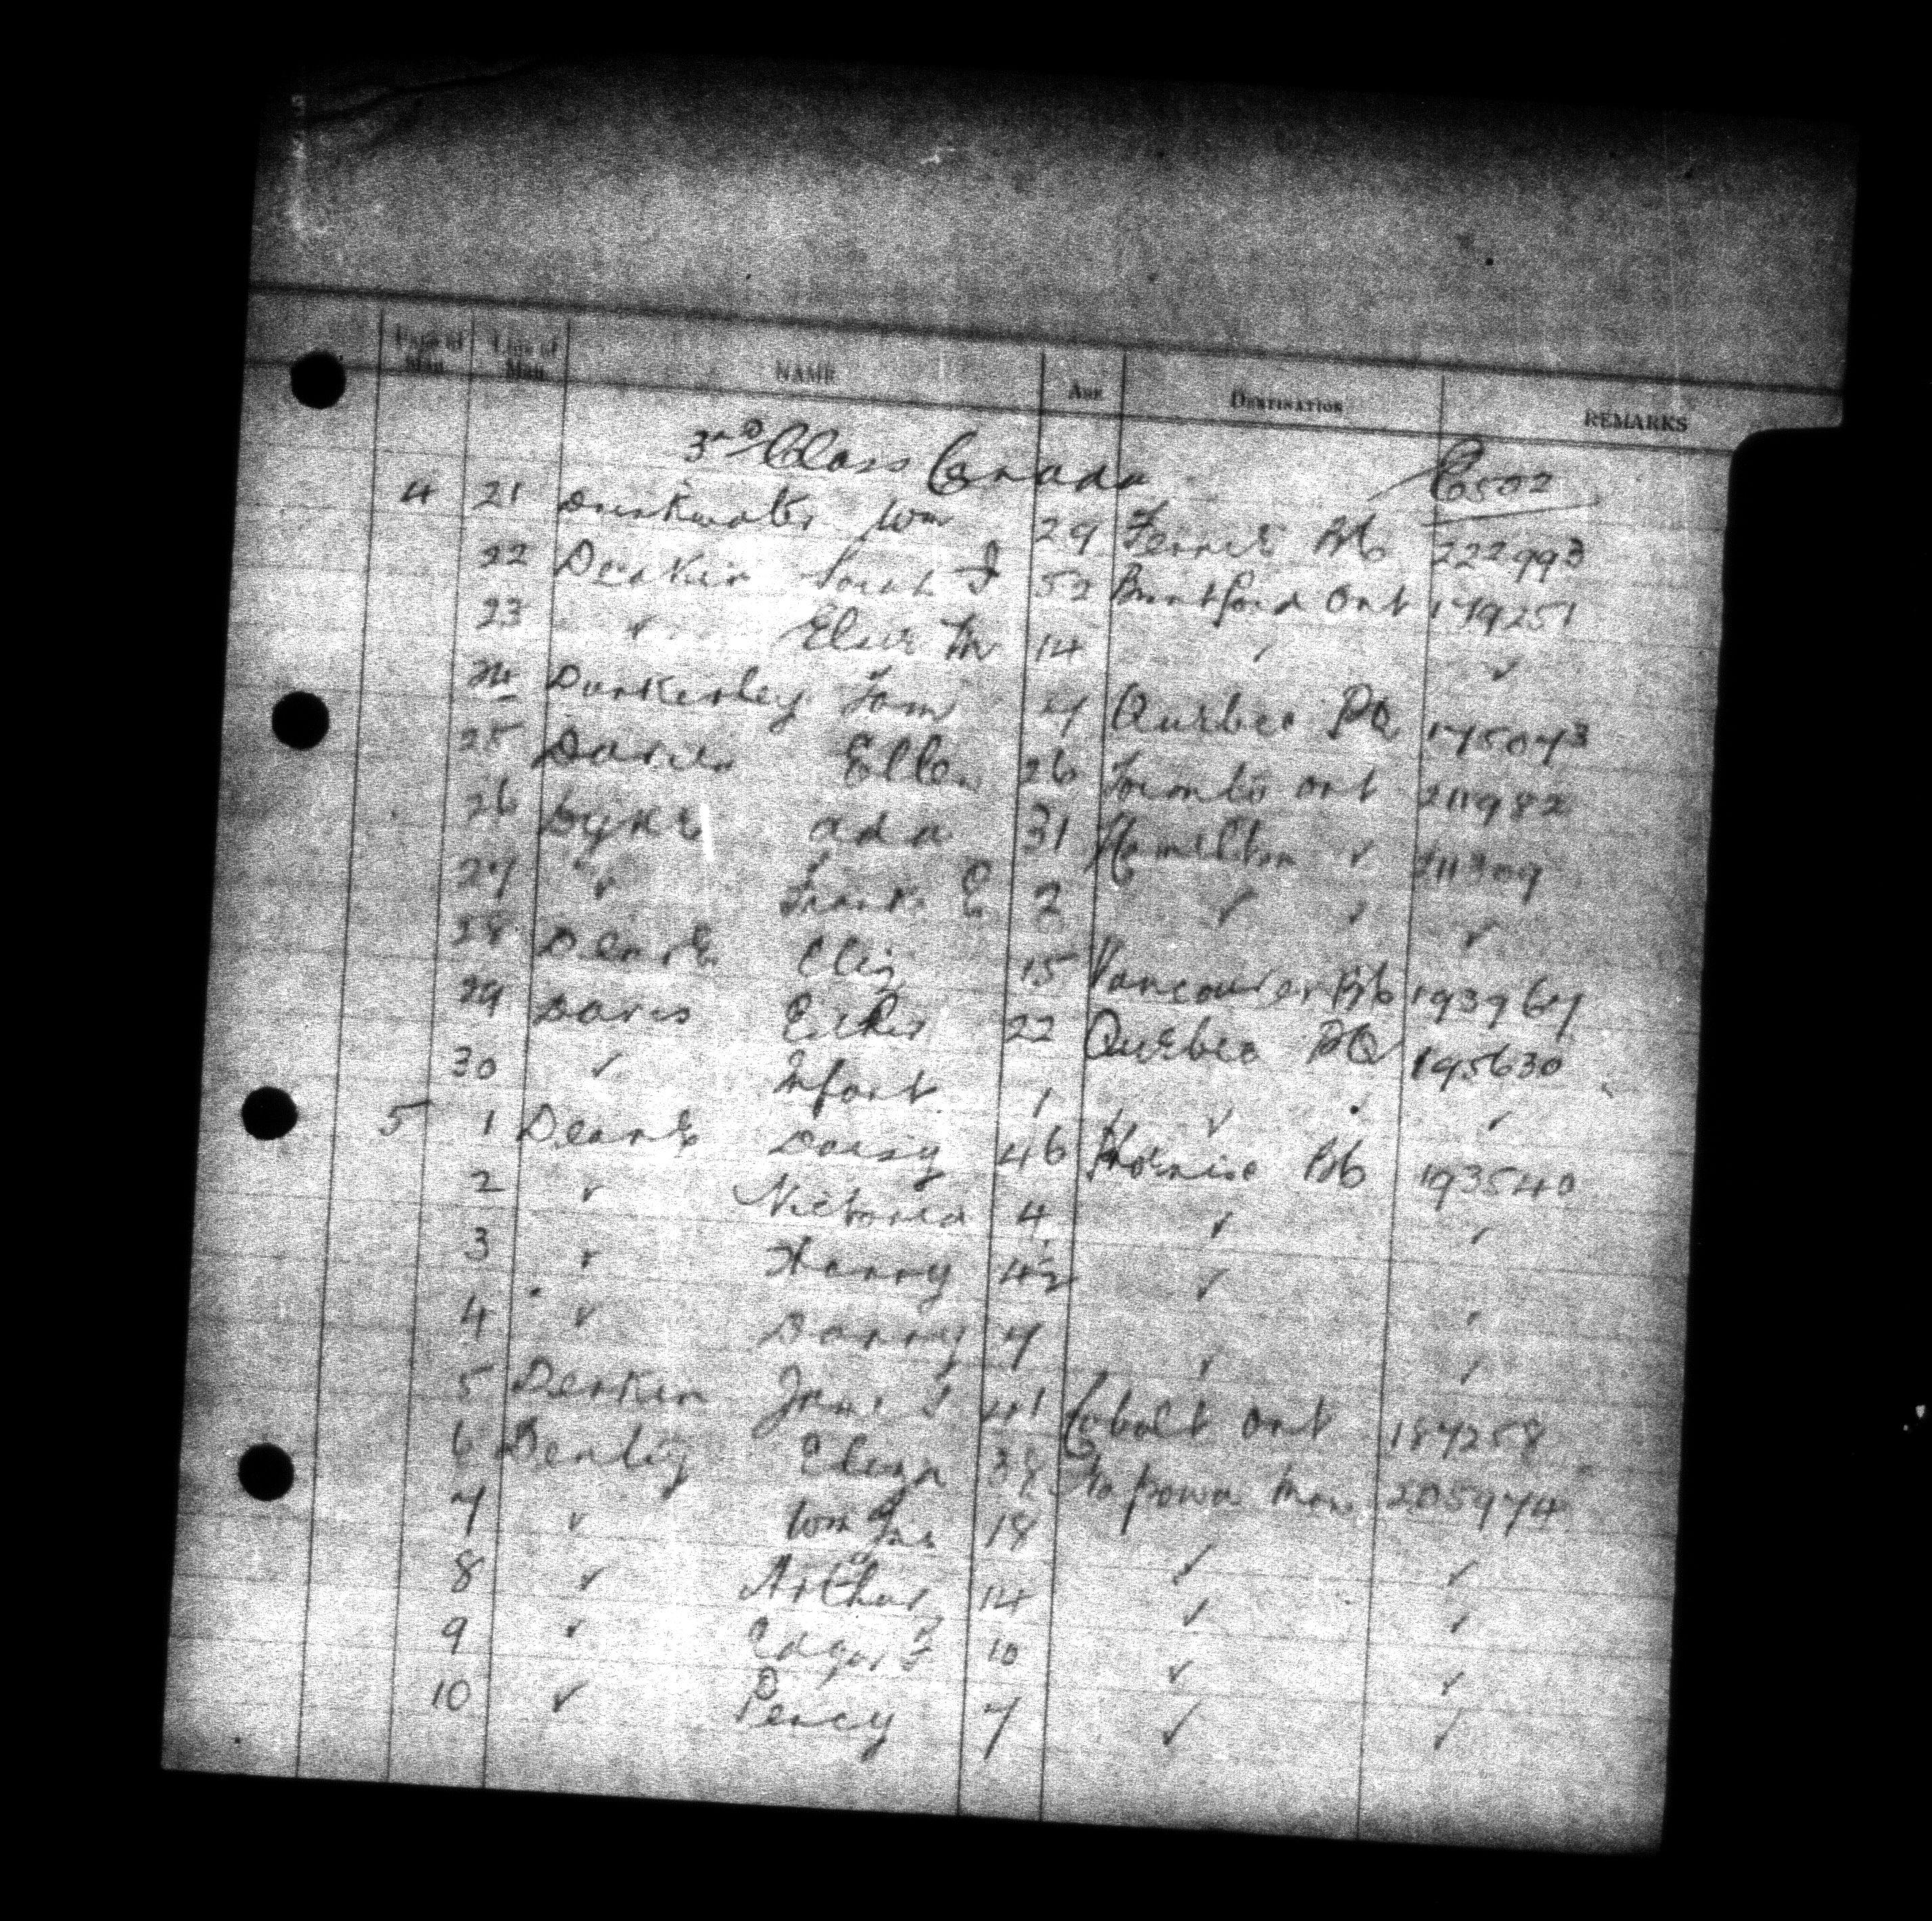 Page of Man. Line of Man. NAME AGE DESTINATION REMARKS
3rd Class Canada C502
4 21 Drinkwater Wm 29 Fernie BC 222993
22 Deakin Sarah J 52 Brantford Ont 179251
23 ✓ Elsie M 14 ✓ ✓
24 Dunkerley Tom 7 Quebec PQ 175073
25 Davies Ellen 26 Toronto Ont 211982
26 Dyke Ada 31 Hamilton ✓ 211309
27 ✓ Frank E 2 ✓ ✓ ✓
28 Deare Eliz 15 Vancouver BC 193967
29 Davis Esther 22 Quebec PQ 195630
30 ✓ Infant 1 ✓ ✓ ✓
5 1 Deane Daisy 46 Phoenix BC 193540
2 ✓ Victoria 4 ✓ ✓
3 ✓ Harry 42 ✓ ✓
4 ✓ Danny 7 ✓ ✓
5 Deakin 41 Cobalt Ont 187258
6 Eliza 38 Napowa Man 205974
7 ✓ Wm Jas 18 ✓ ✓
8 ✓ Arthur 14 ✓ ✓
9 ✓ Edgar F 10 ✓ ✓
10 ✓ Percy 7 ✓ ✓